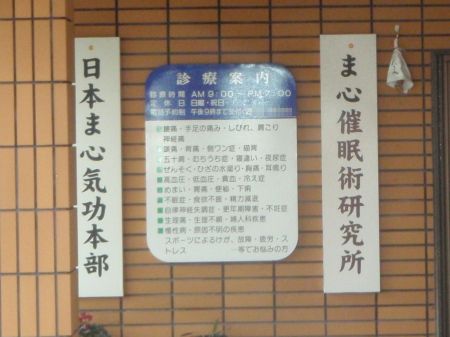 日本ま心気功本部
診療案内
診療時間 AM9:00〜PM7:00
定休日 日曜・祝日
電話予約制 午後9時まで受付
腰痛・手足の痛み・しびれ、肩こり
神経痛
頭痛・背痛・側ワン症・猫背
五十肩・むちうち症・寝違い・夜尿症
ぜんそく・ひざの水溜り・胸痛・耳鳴り
高血圧・低血圧・貧血・冷え症
めまい・胃痛・便秘・下痢
不眠症・食欲不振・精力減退
自律神経失調症・更年期障害・不妊症
生理痛・生理不順・婦人科疾患
慢性病・原因不明の疾患
スポーツによるけが、故障・疲労・ス
トレス 一等でお悩みの方
ま心催眠術研究所